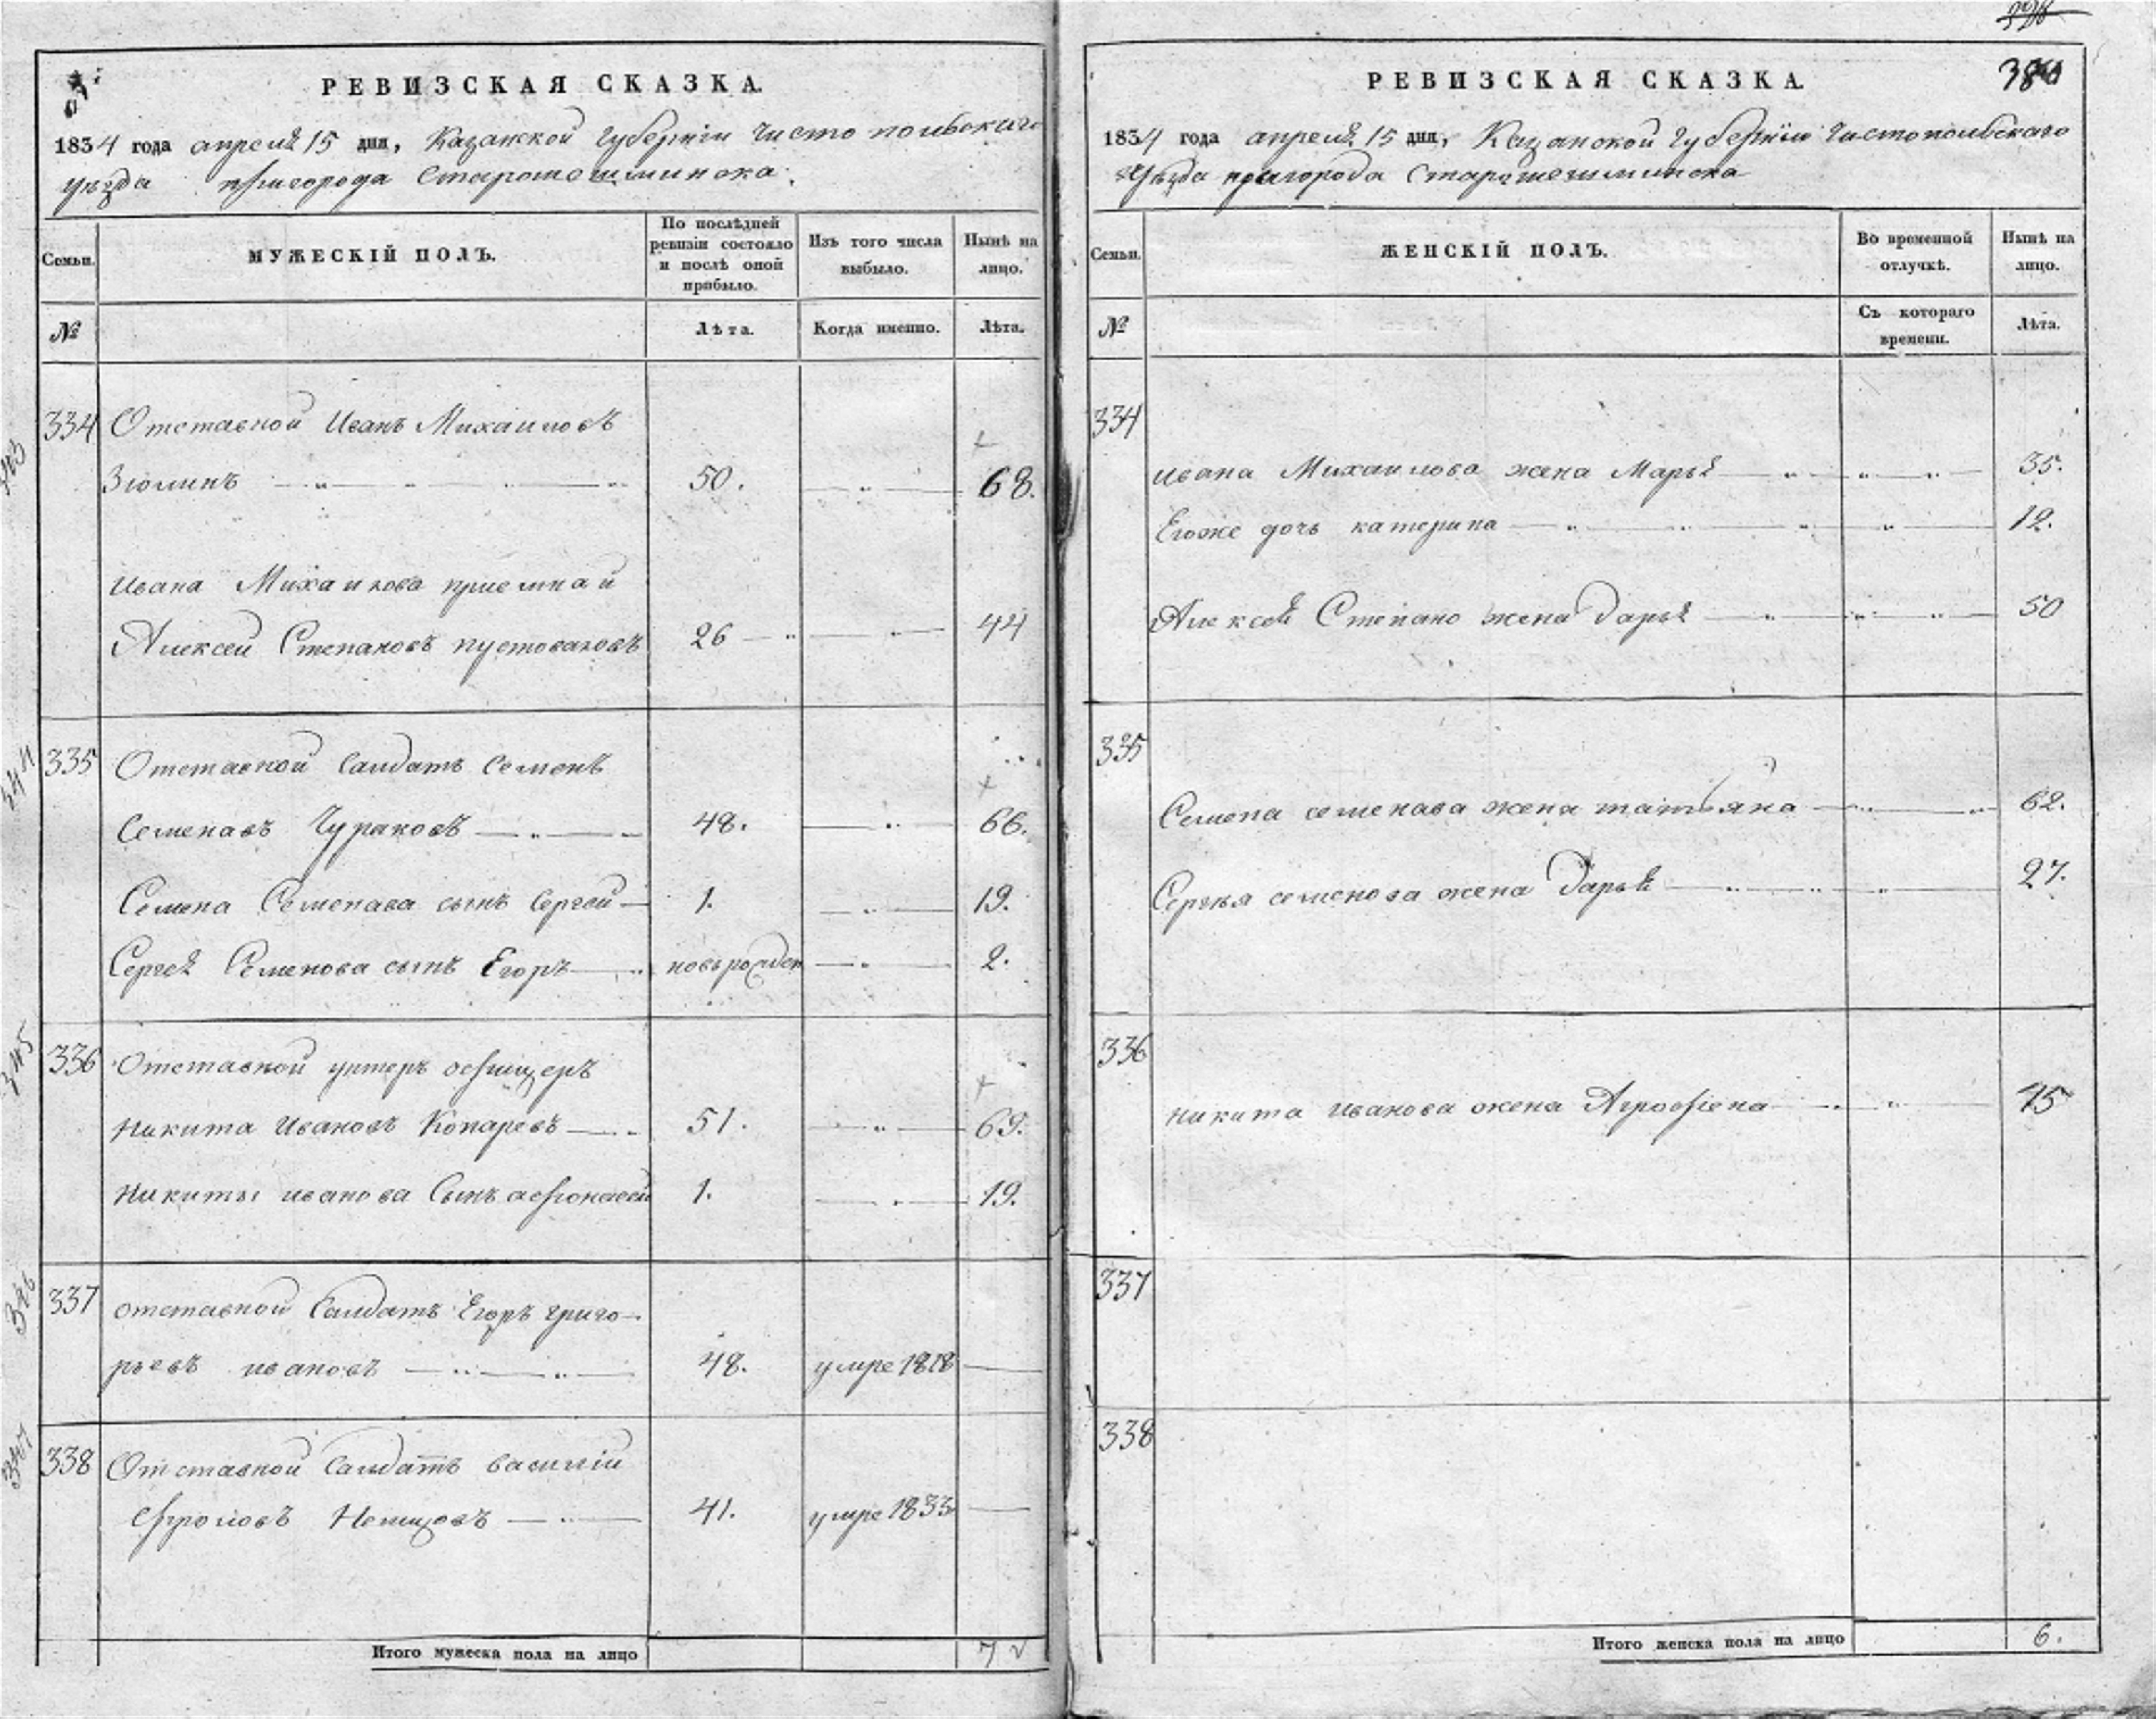 РЕВИЗСКАЯ СКАЗКА.
1834 года апреля 15 дня, Казанской Губернїи Чистопольскаго
уѣзда пригорода Старошешминска.
Семьи.
МУЖЕСКІЙ ПОЛЪ.
По послѣдней ревизіи состояло и послѣ оной прибыло.
Изъ того числа выбыло.
Нынѣ на лицо.
№
Лѣта.
Когда именно.
Лѣта.
334 Отставной Иванъ Михаиловъ
Зюлинъ 50. 68.
Ивана Михаилова приемнай
Алексей Степановъ пустоваловъ 26 44
335 Отставной Салдатъ Семенъ
Семенавъ Чураковъ 48. 66.
Семена Семенава сынъ Сергей 1. 19.
Сергея Семенова сынъ Егоръ новърожден 2.
336 Отставной унтеръ офицеръ
Никита Ивановъ Копаревъ 51. 69.
Никиты иванова Сынъ афонасей 1. 19.
337 отставной Салдатъ Егоръ григо-
рьевъ ивановъ 48. умре 1818
338 Отставной Салдатъ василїи
Фроловъ Немцовъ 41. умре 1833
Итого мужеска пола на лицо 7
384
РЕВИЗСКАЯ СКАЗКА.
1834 года апреля 15 дня, Казанской Губернїи Чистопольскаго
Уѣзда пригорода Старошешминска
Семьи.
ЖЕНСКІЙ ПОЛЪ.
Во временной отлучкѣ.
Нынѣ на лицо.
№
Съ котораго времени.
Лѣта.
334
Ивана Михаилова жена Марья 35.
Егоже дочь катерина 12.
Алексея Степано жена Дарья 50
335
Семена семенава жена татьяна 62.
Сергѣя семенова жена Дарья 27.
336
никита иванова жена Агрофена 45
337
338
Итого женска пола на лицо 6.